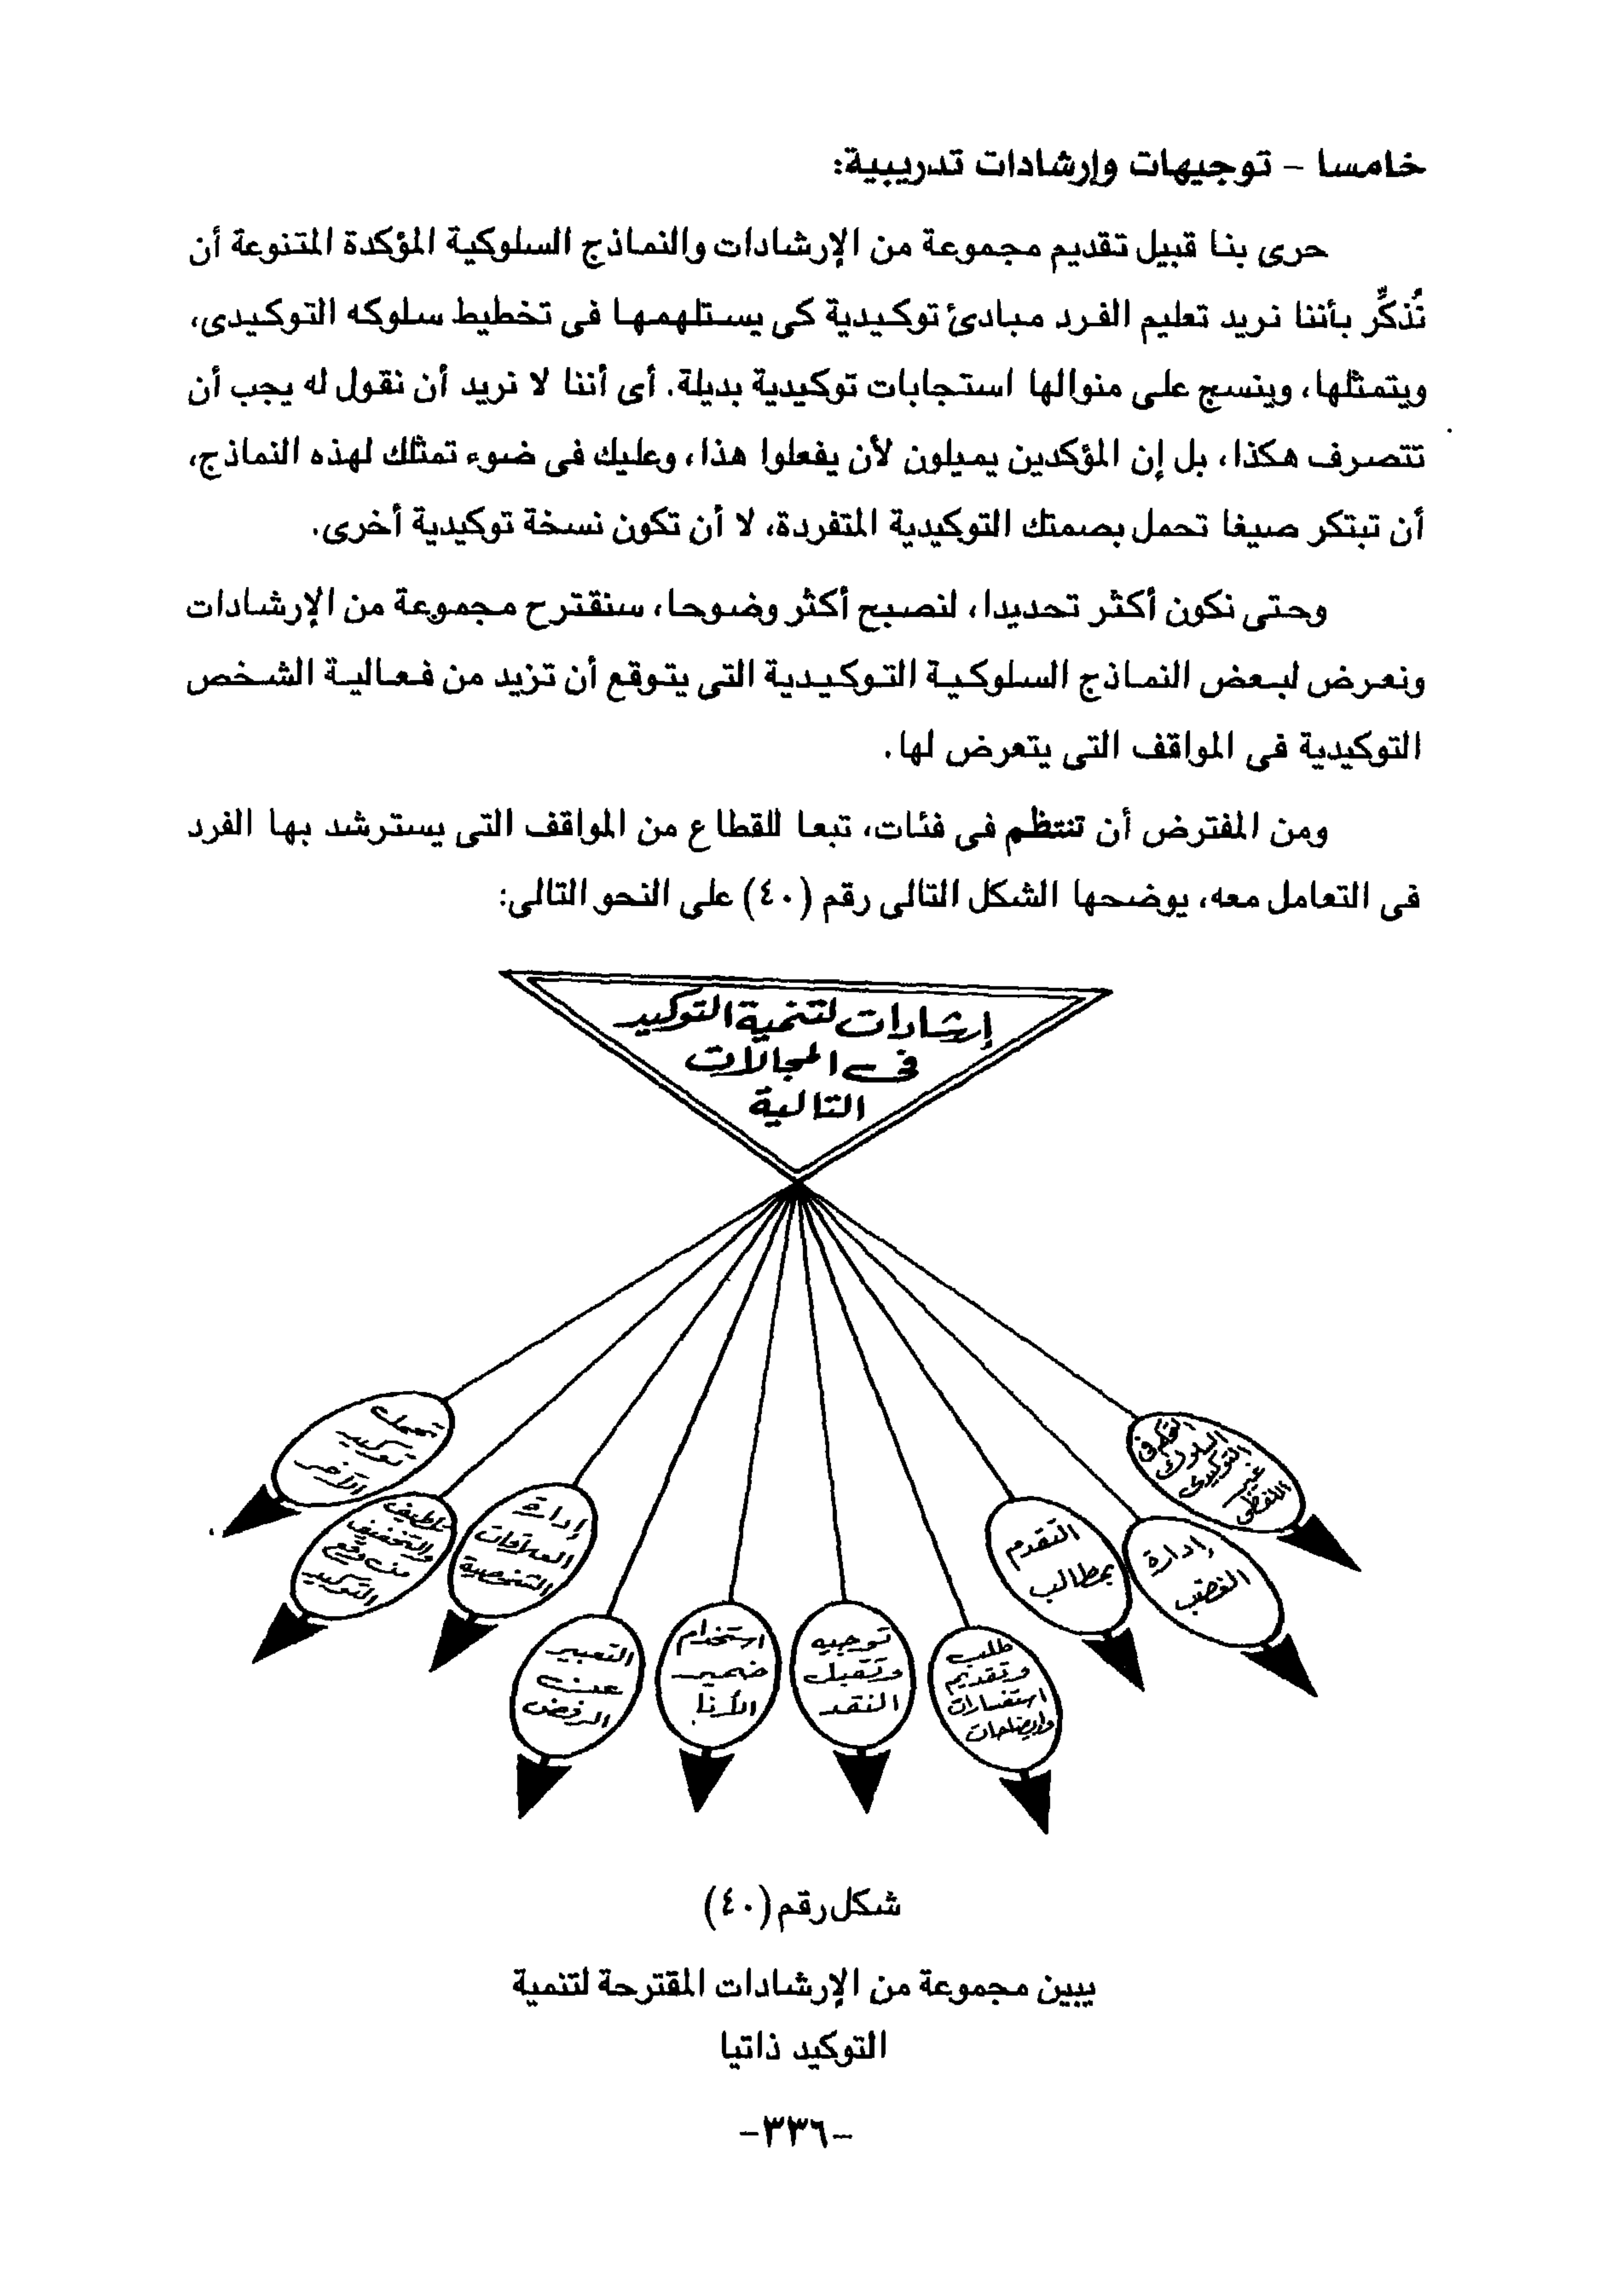 خامسا – توجيهات وإرشادات تدريبية:
حرى بنا قبيل تقديم مجموعة من الإرشادات والنماذج السلوكية المؤكدة المتنوعة أن
نُذكِّر بأننا نريد تعليم الفرد مبادئ توكيدية كى يستلهمها فى تخطيط سلوكه التوكيدى،
ويتمثلها، وينسج على منوالها استجابات توكيدية بديلة. أى أننا لا نريد أن نقول له يجب أن
تتصرف هكذا، بل إن المؤكدين يميلون لأن يفعلوا هذا، وعليك فى ضوء تمثلك لهذه النماذج،
أن تبتكر صيغا تحمل بصمتك التوكيدية المتفردة، لا أن تكون نسخة توكيدية أخرى.
وحتى نكون أكثر تحديدا، لنصبح أكثر وضوحا، سنقترح مجموعة من الإرشادات
ونعرض لبعض النماذج السلوكية التوكيدية التى يتوقع أن تزيد من فعالية الشخص
التوكيدية فى المواقف التى يتعرض لها.
ومن المفترض أن تنتظم فى فئات، تبعا للقطاع من المواقف التى يسترشد بها الفرد
فى التعامل معه، يوضحها الشكل التالى رقم (٤٠) على النحو التالى:
إرشادات لتنمية التوكيد
فى المجالات
التالية
التحكم فى
السلوك
التوكيدى
غير
اللفظى
إدارة
الغضب
التقدم
بمطالب
طلب
وتقديم
استفسارات
وإيضاحات
توجيه
وتقبل
النقد
استخدام
ضمير
الأنا
التعبير
عن
الرفض
إدارة
العلاقات
الشخصية
تلطيف
والتخفيف
من وقع
التوكيد
تحمل
توكيد
الآخر
شكل رقم (٤٠)
يبين مجموعة من الإرشادات المقترحة لتنمية
التوكيد ذاتيا
-٣٣٦-